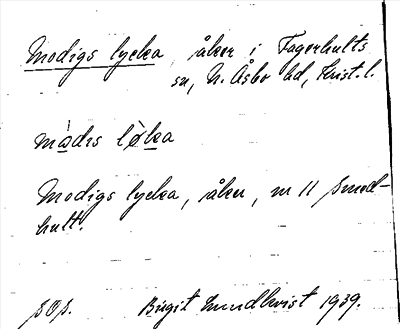 Modigs lycka, åker i Fagerhults
sn, N. Åsbo hd, Krist. l.
mo̱dıs lø̱ka
Modigs lycka, åker, nr 11 Smed-
hult.
Birgit Lundkvist 1939.